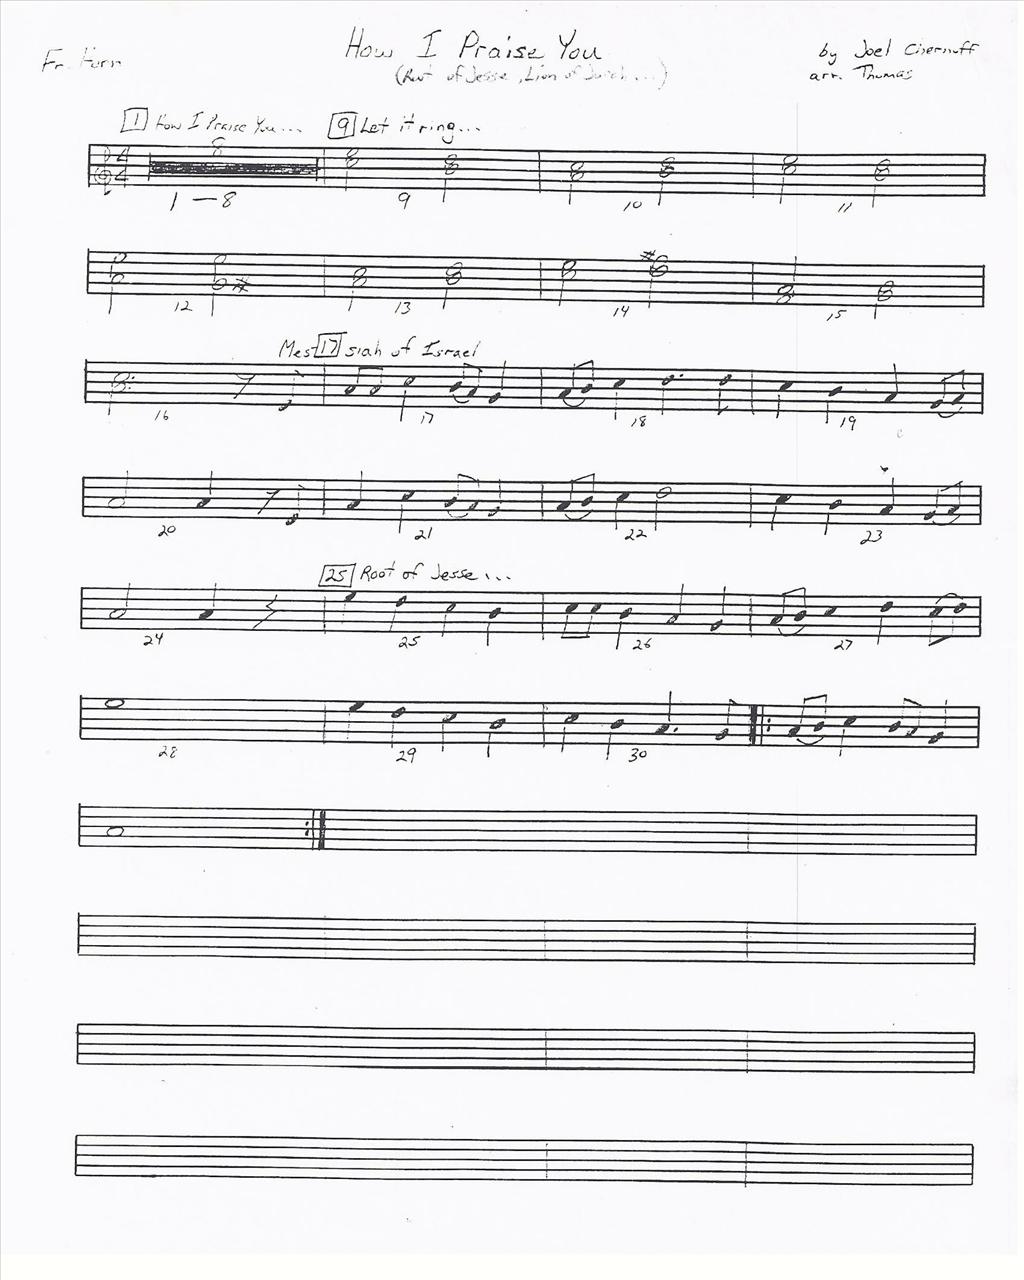 How I Praise You
Fr. Horn
(Root of Jesse, Lion of Judah...)
by Joel Chernoff
arr. Thomas
1 How I Praise You...
9 Let it ring...
4
4
8
1-8
9
10
11
12
13
14
15
Mes 17 siah of Israel
16
17
18
19
20
21
22
23
25 Root of Jesse...
24
25
26
27
28
29
30